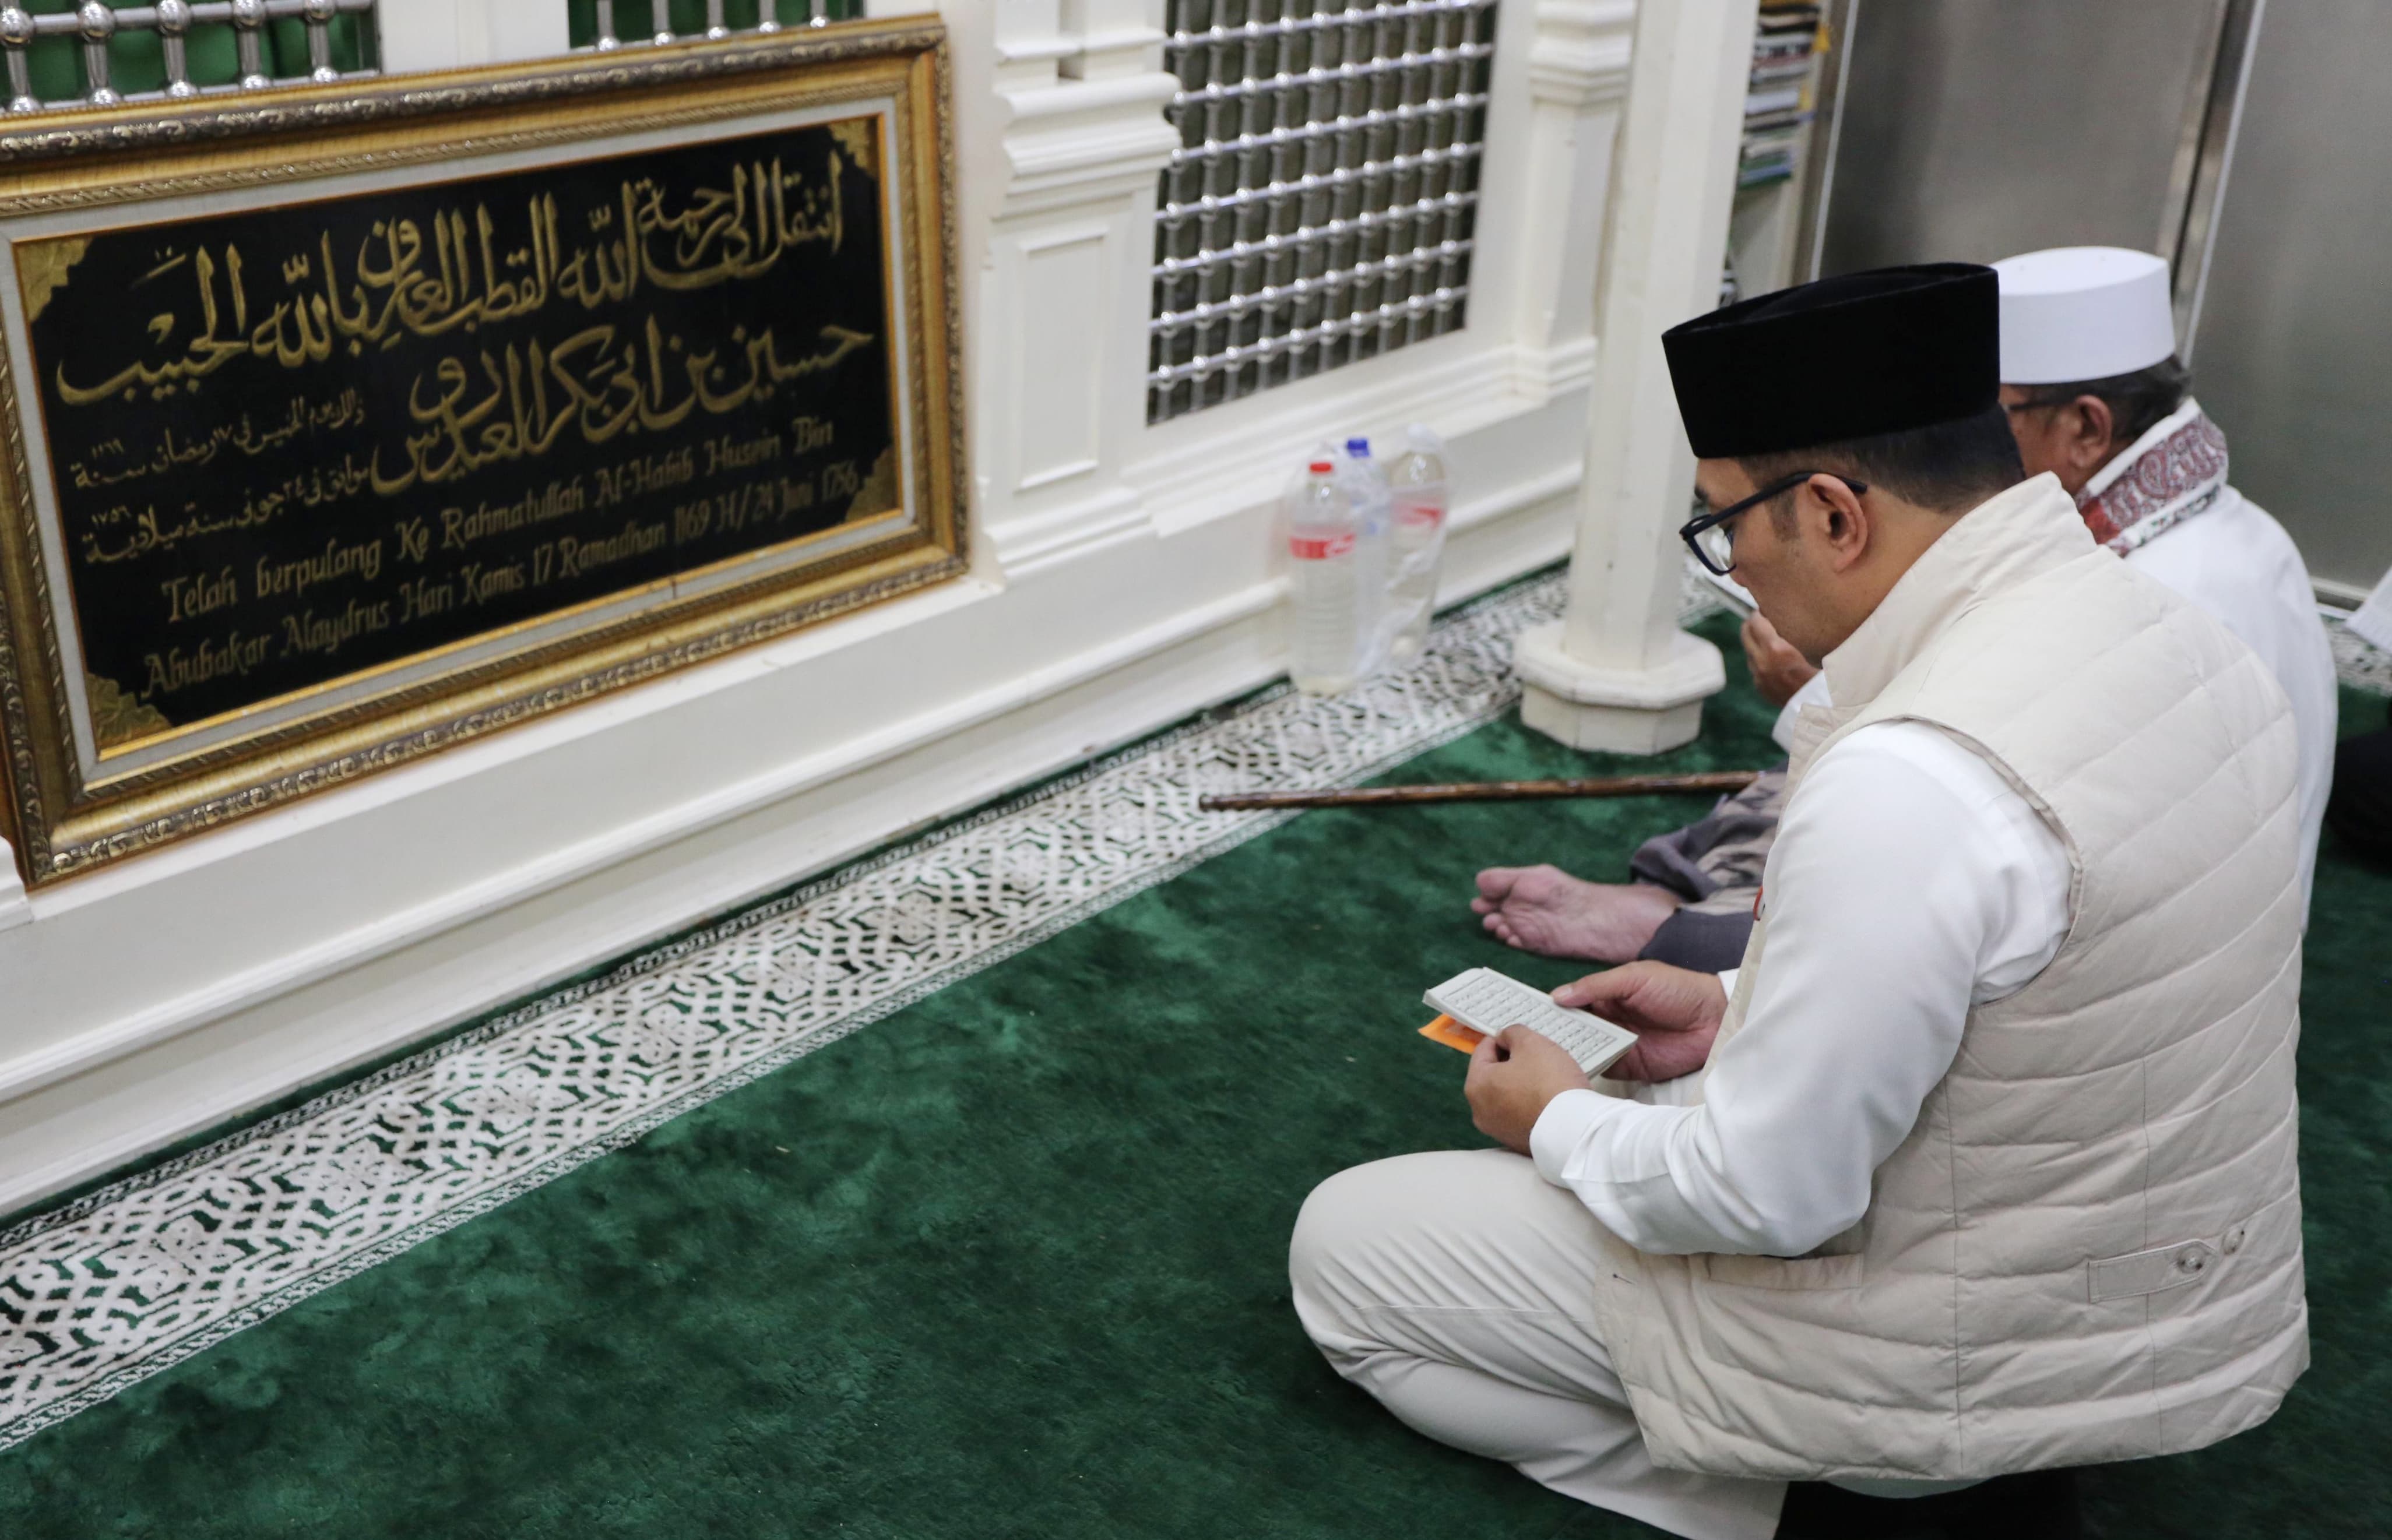 انتقل الى رحمة الله القطب العارف بالله الحبيب
حسين بن ابى بكر العيدروس
ذالك يوم الخميس فى ١٧ رمضان سنة ١١٦٩
موافق فى ٢٤ جونى سنة ميلادية ١٧٥٦
Telah berpulang Ke Rahmatullah Al-Habib Husein Bin
Abubakar Alaydrus Hari Kamis 17 Ramadhan 1169 H/24 Juni 1756